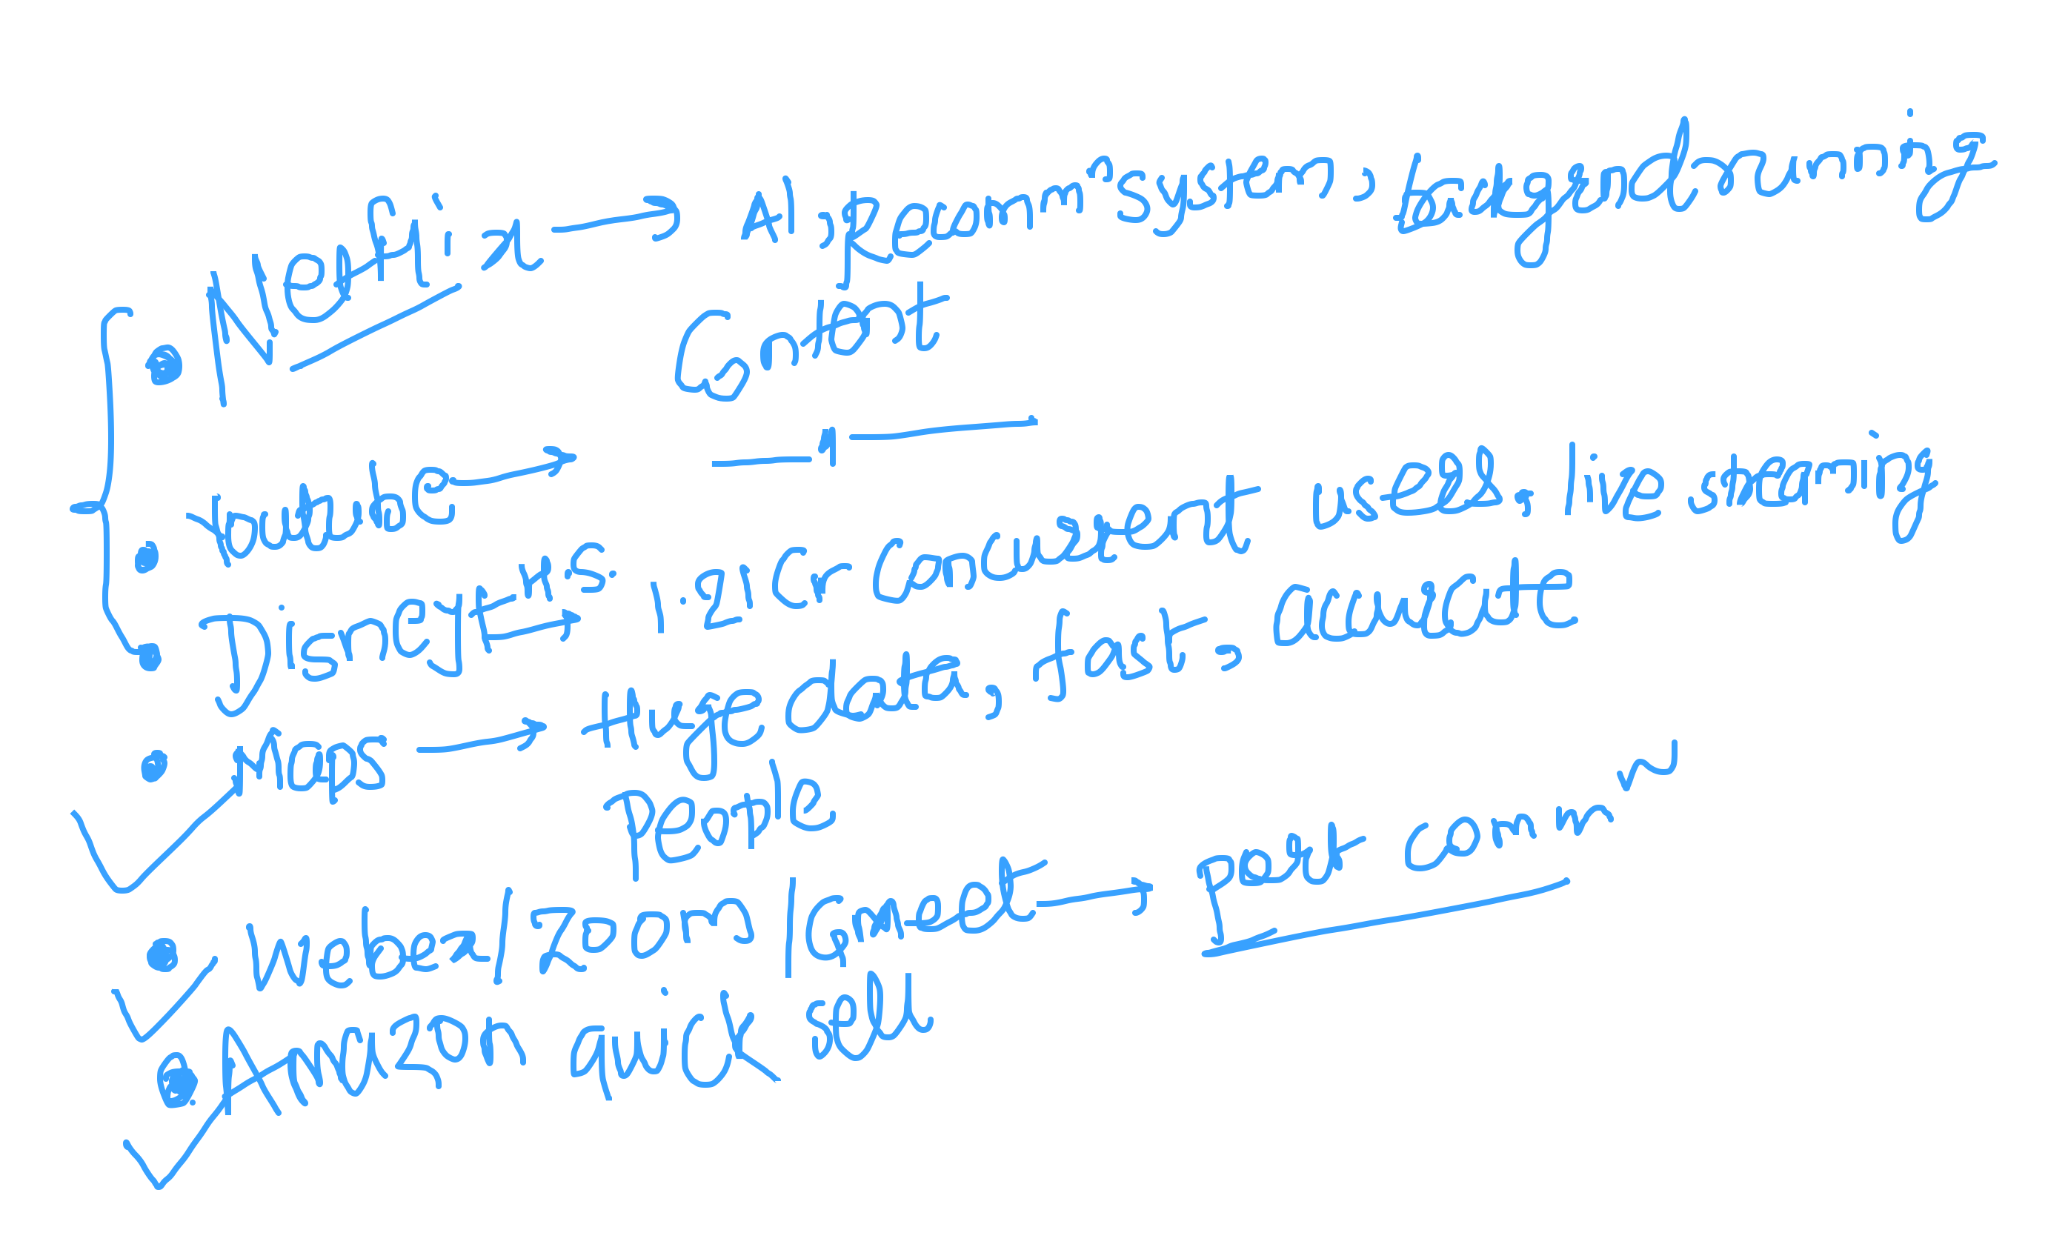 • Netflix → AI, Recommⁿ system, backgrnd running
Content
• Youtube → — 11 —
• Disney+ H.S. → 1.21 Cr Concurrent users, live streaming
• Maps → Huge data, fast, accurate
People
• Webex / Zoom / Gmeet → port commⁿ
• Amazon quick sell